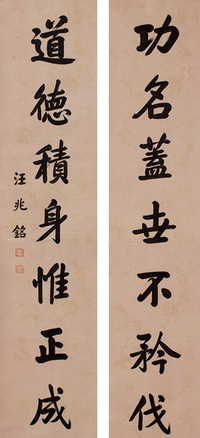 功名蓋世不矜伐
道德積身惟正成
汪兆銘